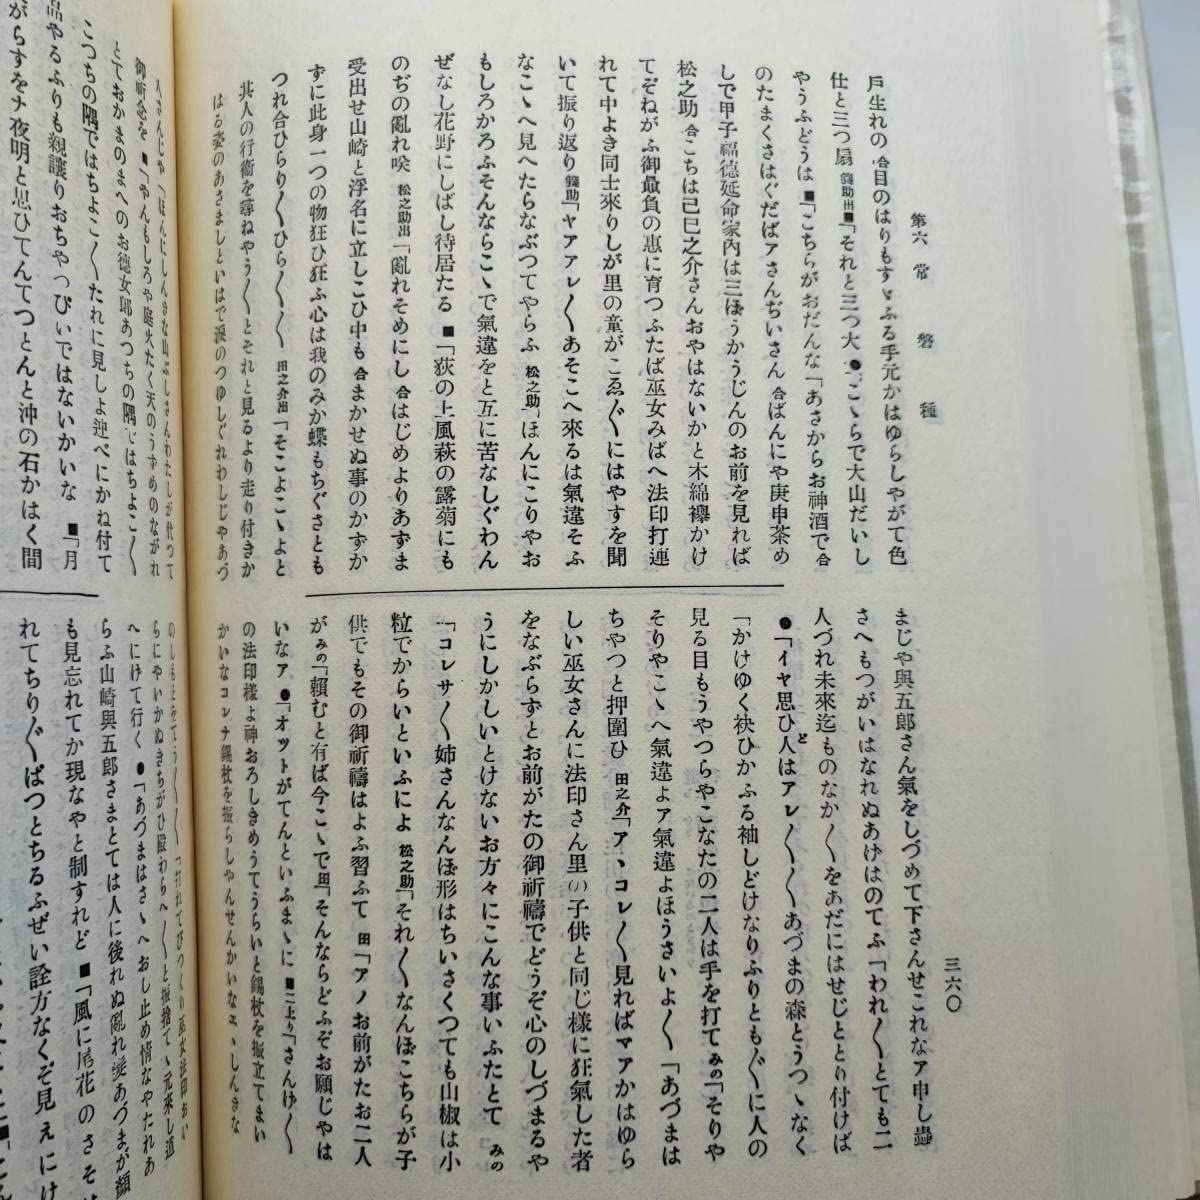 第六 常磐種
三六〇
戶生れの 合 目のはりもすヾふる手元かはゆらしやがて色
仕と三つ扇 義助出■「それと三つ大 ●「こゝらで大山だいし
やうふどうは ■「こちらがおだんな「あさからお神酒で 合
のたまくさはぐだばアさんぢいさん 合 ばんにや庚申茶め
しで甲子福德延命家內は三ぼうかうじんのお前を見れば
松之助 合 こちは己巳之介さんおやはないかと木綿襷かけ
てぞねがふ御贔負の惠に育つふたば巫女みばへ法印打連
れて中よき同士來りしが里の童がこゑ〴〵にはやすを聞
いて振り返り 義助「ヤアアレ〳〵あそこへ來るは氣違そふ
なこゝへ見へたらなぶつてやらふ 松之助「ほんにこりやお
もしろかろふそんならこゝで氣違をと互に苦なしぐわん
ぜなし花野にしばし待居たる ■「荻の上風萩の露菊にも
のぢの亂れ咲 松之助出「亂れそめにし 合 はじめよりあずま
受出せ山崎と浮名に立しこひ中も 合 まかせぬ事のかずか
ずに此身一つの物狂ひ狂ふ心は我のみか蝶もちぐさとも
つれ合ひらり〳〵ひら〳〵〳〵 田之介出「そこよこゝよと
共人の行衞を尋ねやう〳〵とそれと見るより走り付きか
はる姿のあさましといはで淚のつゆしぐれわしじやあづ
まじや與五郎さん氣をしづめて下さんせこれなア申し蟲
さへもつがいはなれぬあけはのてふ「われ〳〵とても二
人づれ未來迄ものなか〳〵をあだにはせじととり付けば
●「イヤ思ひ人はアレ〳〵〳〵あづまの森とうつゝなく
「かけゆく袂ひかふる袖しどけなりふりともぐ〵に人の
見る目もうやつらやこなたの二人は手を打て みの「そりや
そりやこゝへ氣違よア氣違よほうさいよ〳〵「あづまは
ちやつと押圍ひ 田之介「アヽコレ〳〵見ればマアかはゆら
しい巫女さんに法印さん里の子供と同じ樣に狂氣した者
をなぶらずとお前がたの御祈禱でどうぞ心のしづまるや
うにしかしいとけないお方々にこんな事いふたとて みの
「コレサ〳〵姉さんなんぼ形はちいさくつても山椒は小
粒でからいといふによ 松之助「それ〳〵なんぼこちらが子
供でもその御祈禱はよふ習ふて 田「アノお前がたお二人
が みの「賴むと有ば今こゝで 田「そんならどふぞお願じやは
いなア ●「オツトがてんといふまゝに ■二上り「さんげ〳〵
の法印樣よ神おろしきめうてうらいと錫杖を振立てまい
かいなコレナ錫杖を振らしやんせんかいなエヽしんきな
人さんじや「ほんにしんきな山ぶしさんわたしが代つて
御祈念を ■「やんもしろや庭火たく天のうずめのながれ
とておかまのまへのお德女郎あつちの隅ではちよこ〳〵
こつちの隅ではちよこ〳〵たれに見しよ迚べにかね付て
品やるふりも親讓りおちやつぴいではないかいな ■「月
がらすをナ夜明と思ひてんてつとんと沖の石かはく間
へにけて行く ●「あづまはさゝへおし止め情なやたれあ
らふ山崎與五郎さまとては人に後れぬ亂れ髮あづまが顏
も見忘れてか現なやと制すれど ■「風に尾花のさそ
れてちり〴〵ぱつとちるふぜい詮方なくぞ見えにけ